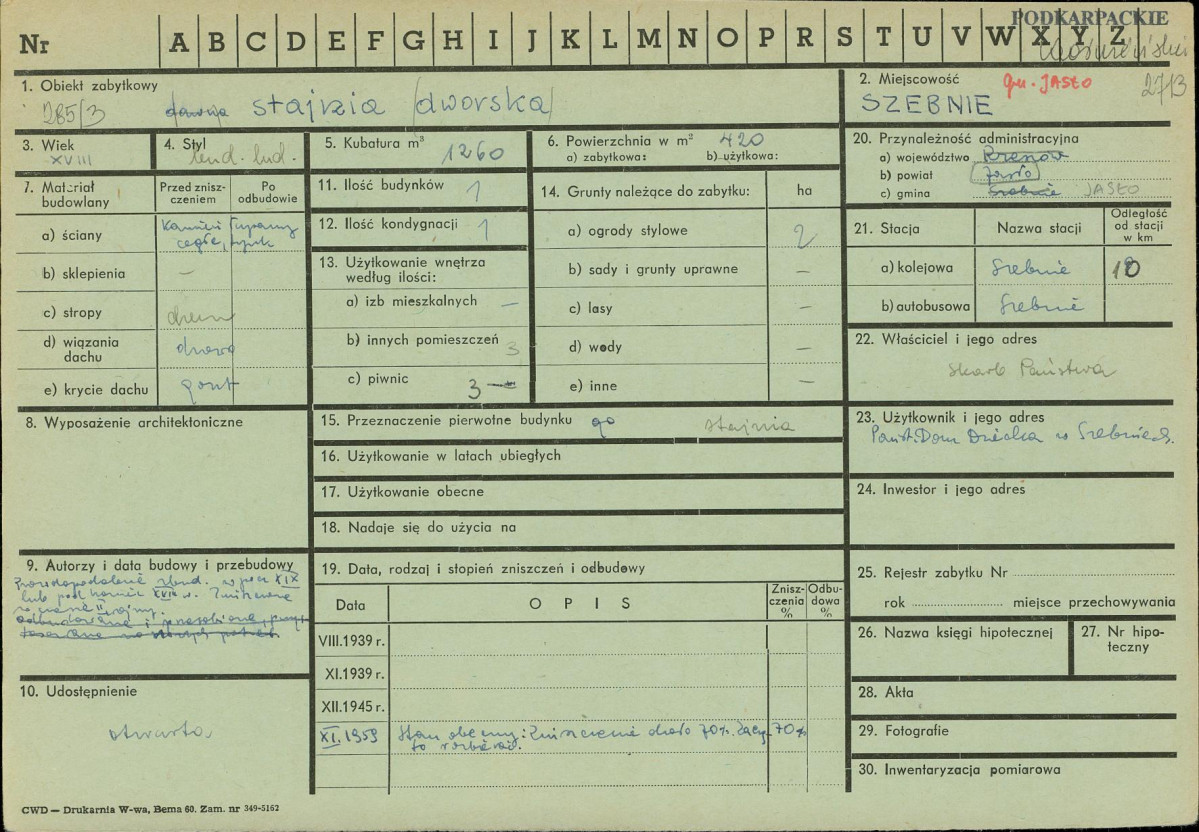 Nr A B C D E F G H I J K L M N O P R S T U V W X Y Z
PODKARPACKIE
1. Obiekt zabytkowy
285/3 dawna stajnia (dworska)
2. Miejscowość gm. JASŁO 2713
SZEBNIE
3. Wiek
XVIII
4. Styl
bud. lud.
5. Kubatura m³ 1260
6. Powierzchnia w m² 420
a) zabytkowa: b) użytkowa:
20. Przynależność administracyjna
a) województwo Rzeszów
b) powiat Jasło
c) gmina Szebnie JASŁO
7. Materiał budowlany
Przed zniszczeniem
Po odbudowie
a) ściany Kamień łupany
cegła, tynk
b) sklepienia –
c) stropy drewn
d) wiązania dachu drewn
e) krycie dachu gont
11. Ilość budynków 1
12. Ilość kondygnacji 1
13. Użytkowanie wnętrza według ilości:
a) izb mieszkalnych –
b) innych pomieszczeń 3
c) piwnic 3 –
14. Grunty należące do zabytku: ha
a) ogrody stylowe 2
b) sady i grunty uprawne –
c) lasy –
d) wody –
e) inne –
21. Stacja Nazwa stacji Odległość od stacji w km
a) kolejowa Szebnie
b) autobusowa Szebnie
22. Właściciel i jego adres
Skarb Państwa
8. Wyposażenie architektoniczne
15. Przeznaczenie pierwotne budynku stajnia
16. Użytkowanie w latach ubiegłych
17. Użytkowanie obecne
18. Nadaje się do użycia na
23. Użytkownik i jego adres
Państ. Dom Dziecka w Szebniach.
24. Inwestor i jego adres
9. Autorzy i data budowy i przebudowy
Prawdopodobnie zbud. w pocz XIX
lub pod koniec XVIII w. Zniszczona
w czasie II wojny.
odbudowana i przerobiona, przy-
10. Udostępnienie
otwarta
19. Data, rodzaj i stopień zniszczeń i odbudowy
Data OPIS Zniszczenia % Odbudowa %
VIII.1939 r.
XI.1939 r.
XII.1945 r.
XI.1959 Stan obecny: Zniszczenie około 70%. 70%
to rozbiórki.
25. Rejestr zabytku Nr
rok miejsce przechowywania
26. Nazwa księgi hipotecznej
27. Nr hipoteczny
28. Akta
29. Fotografie
30. Inwentaryzacja pomiarowa
CWD — Drukarnia W-wa, Bema 60. Zam. nr 349-5162